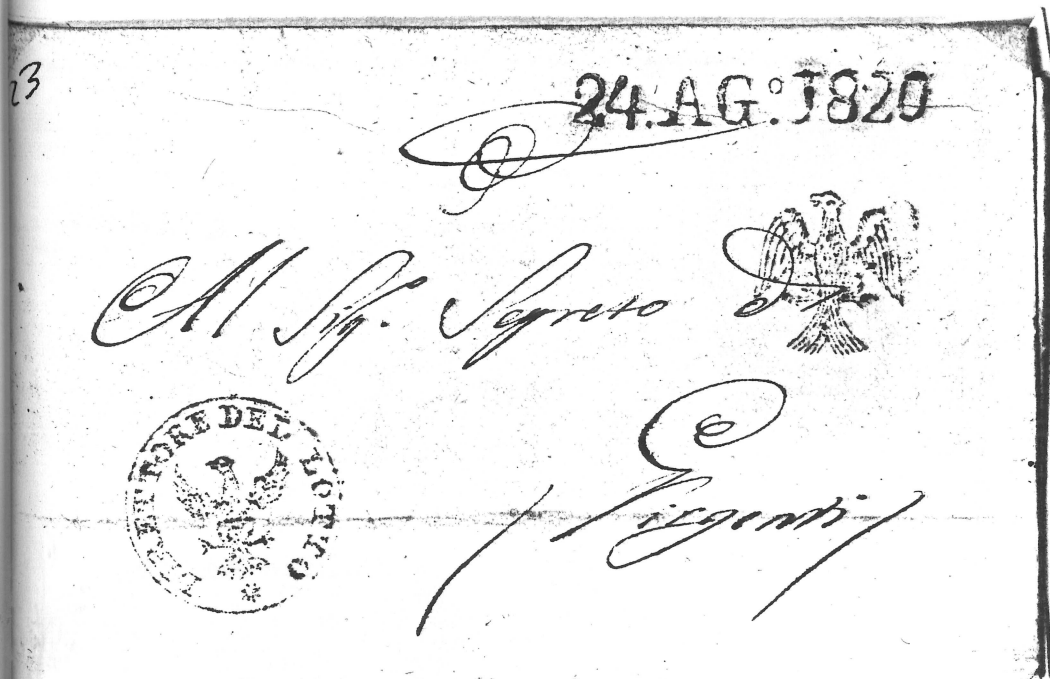 23
24.AG:º1820
Al Sig.r Segreto di
DIRETTORE DEL LOTTO
Girgenti